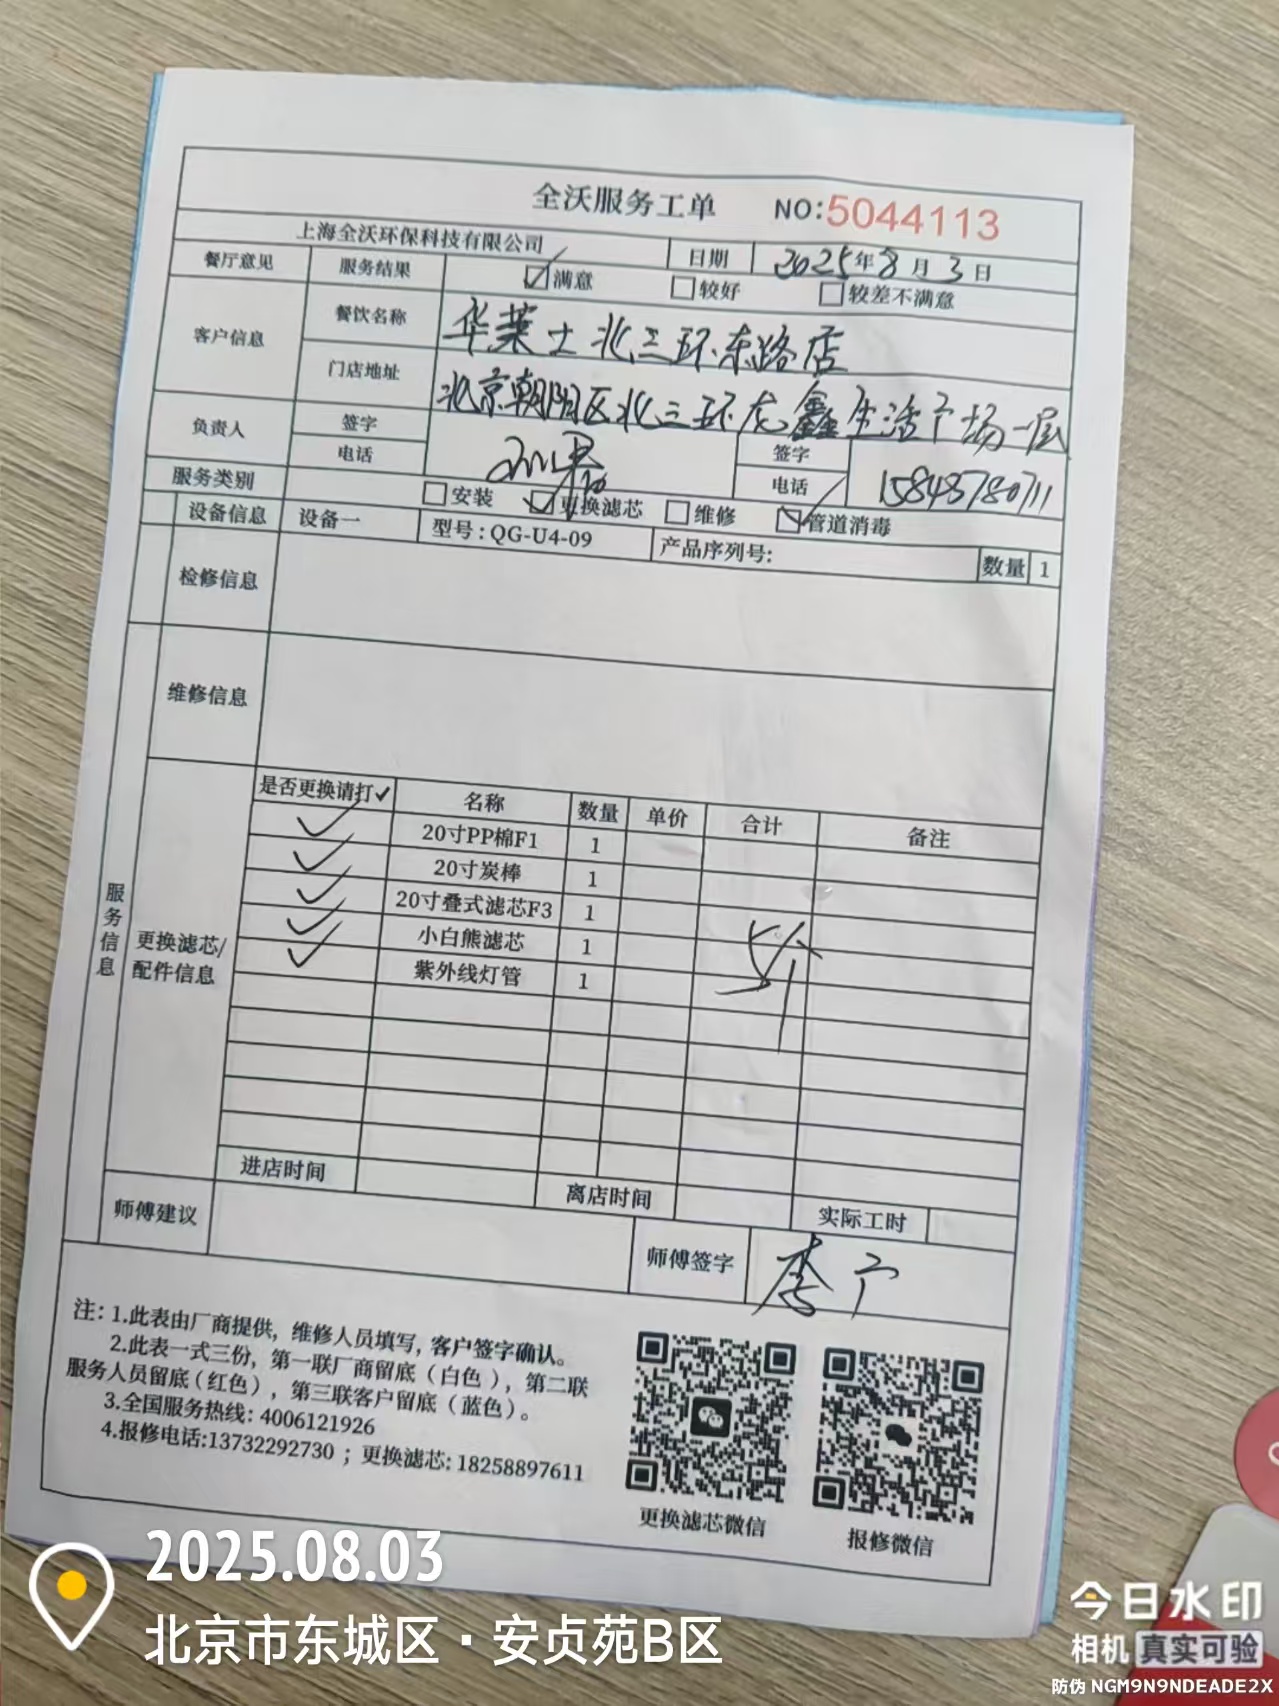 全沃服务工单 NO:5044113
上海全沃环保科技有限公司 日期 2025年8月3日
餐厅意见 服务结果 ☑满意 □较好 □较差不满意
客户信息 餐饮名称 华莱士北三环东路店
门店地址 北京朝阳区北三环龙鑫生活广场一层
负责人 签字 签字
电话 电话 15848780711
服务类别 □安装 ☑更换滤芯 □维修 ☑管道消毒
设备信息 设备一 型号:QG-U4-09 产品序列号: 数量 1
检修信息
维修信息
服务信息
更换滤芯/
配件信息
是否更换请打✓ 名称 数量 单价 合计 备注
✓ 20寸PP棉F1 1
✓ 20寸炭棒 1
✓ 20寸叠式滤芯F3 1
✓ 小白熊滤芯 1 5个
✓ 紫外线灯管 1
进店时间 离店时间 实际工时
师傅建议 师傅签字 李宁
注:1.此表由厂商提供,维修人员填写,客户签字确认。
2.此表一式三份,第一联厂商留底(白色),第二联
服务人员留底(红色),第三联客户留底(蓝色)。
3.全国服务热线:4006121926
4.报修电话:13732292730;更换滤芯:18258897611
更换滤芯微信 报修微信
2025.08.03
北京市东城区·安贞苑B区
今日水印
相机 真实可验
防伪 NGM9N9NDEADE2X